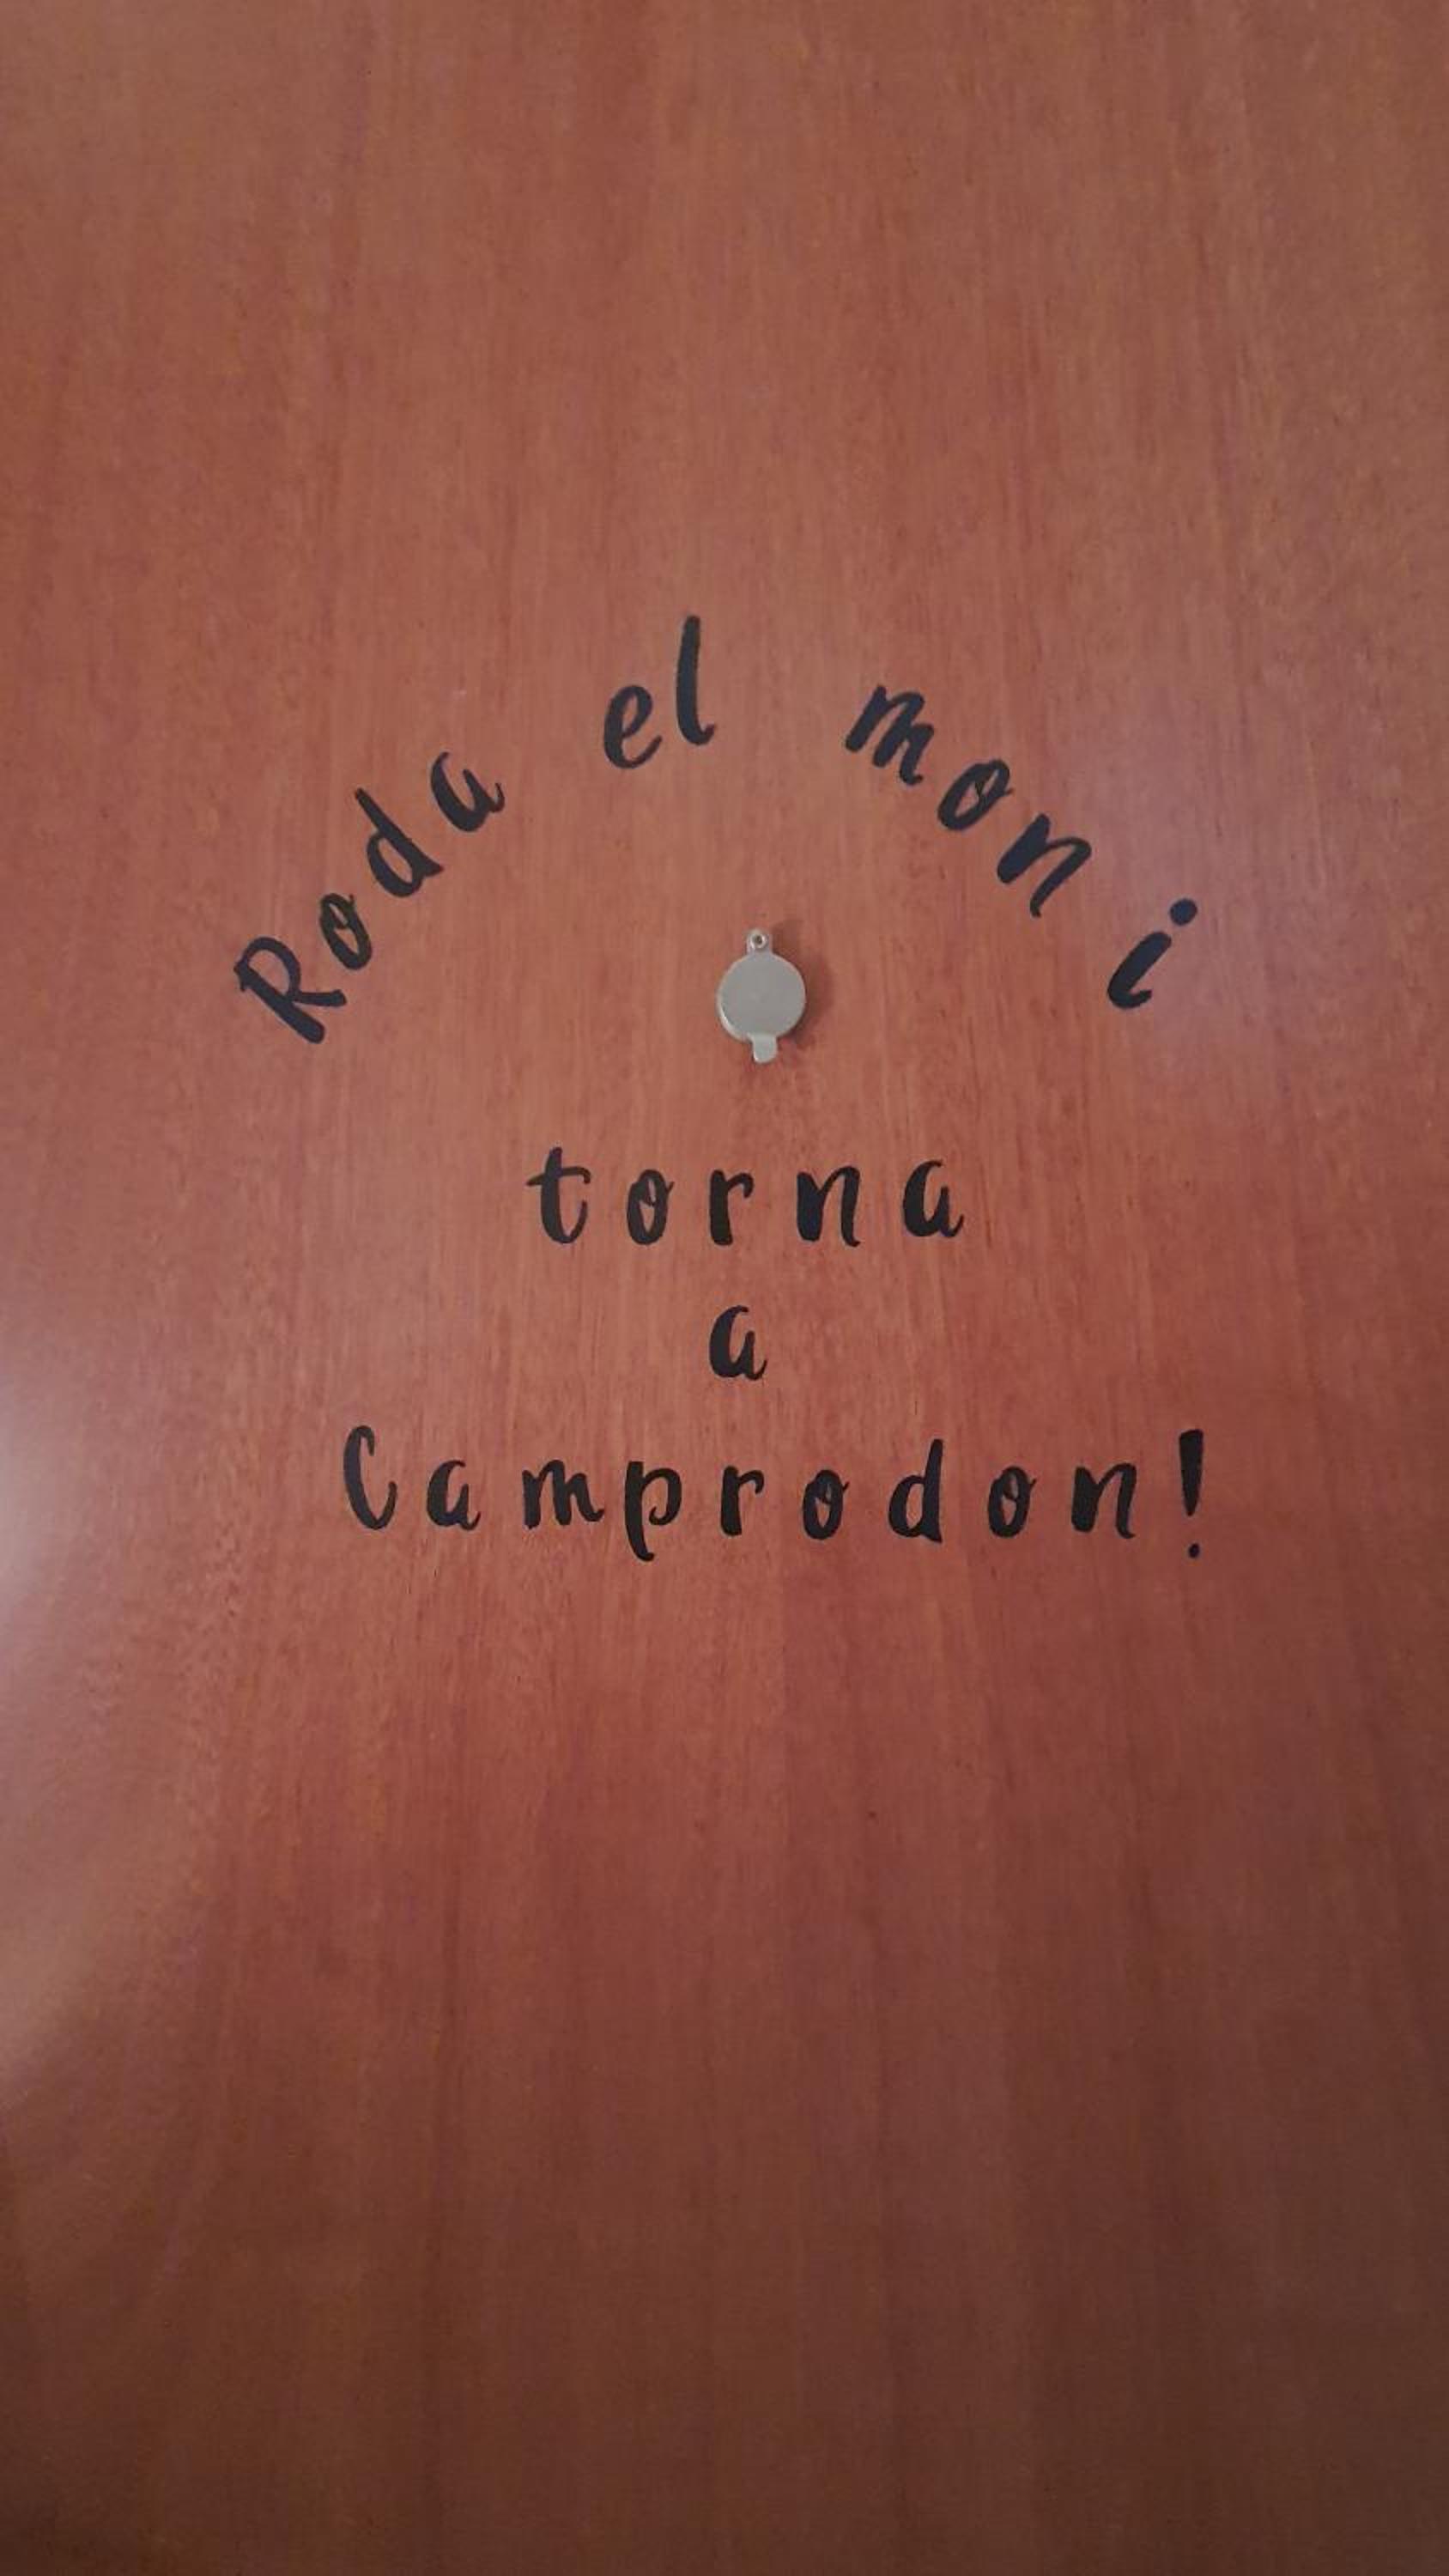 Roda el mon i
torna
a
Camprodon!